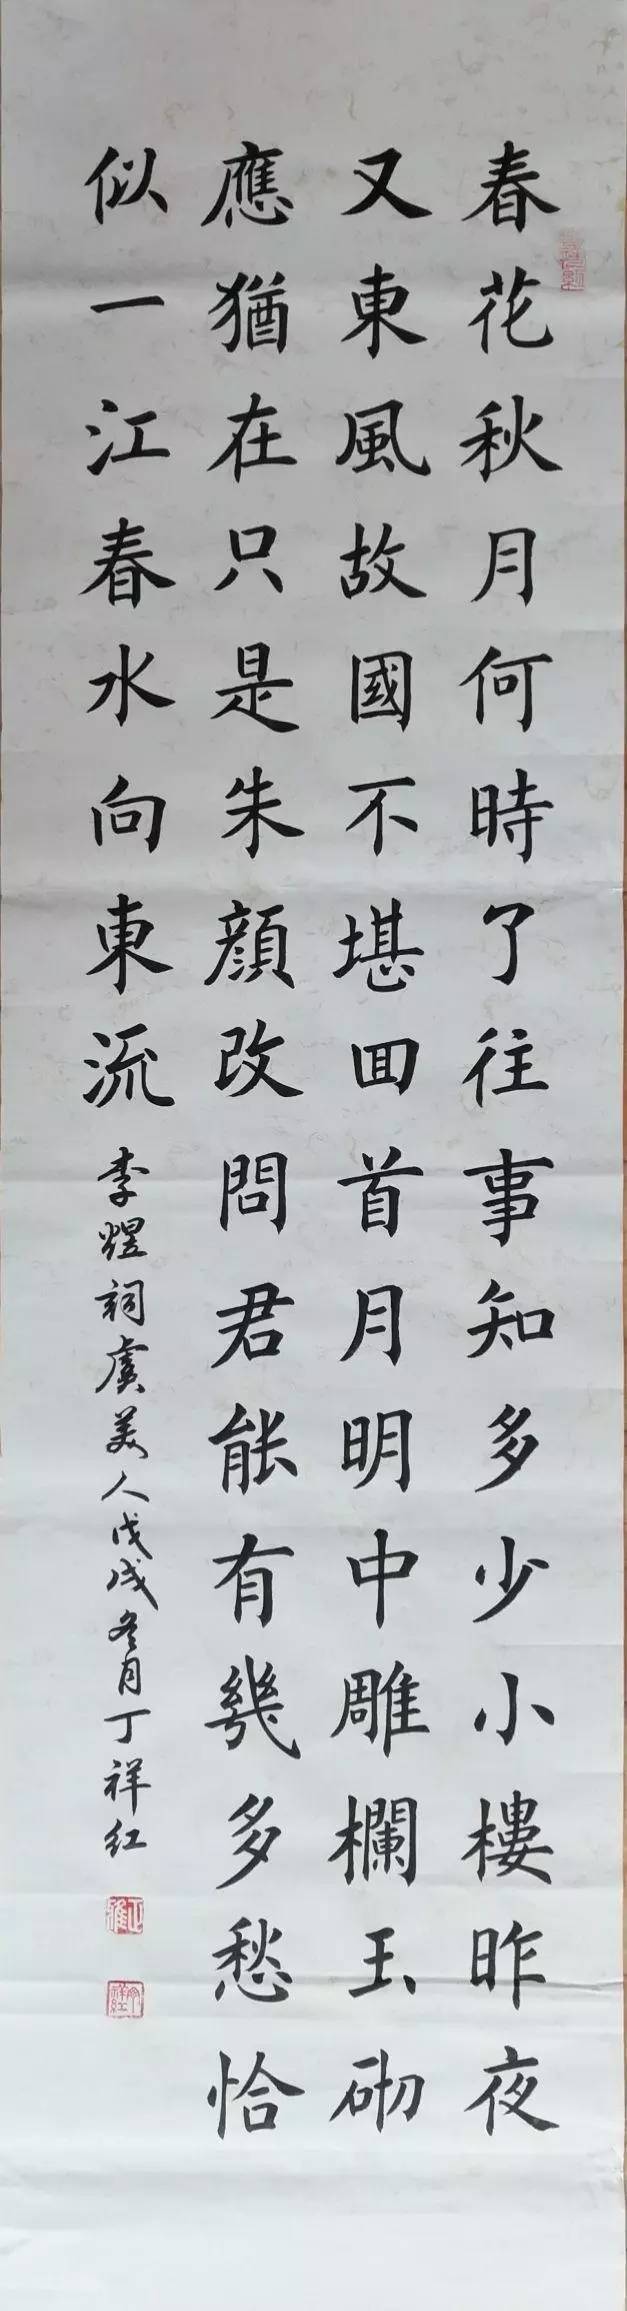 春花秋月何時了往事知多少小樓昨夜
又東風故國不堪囬首月明中雕欄玉砌
應猶在只是朱顔改問君能有幾多愁恰
似一江春水向東流
李煜祠虞美人戊戌冬月丁祥红